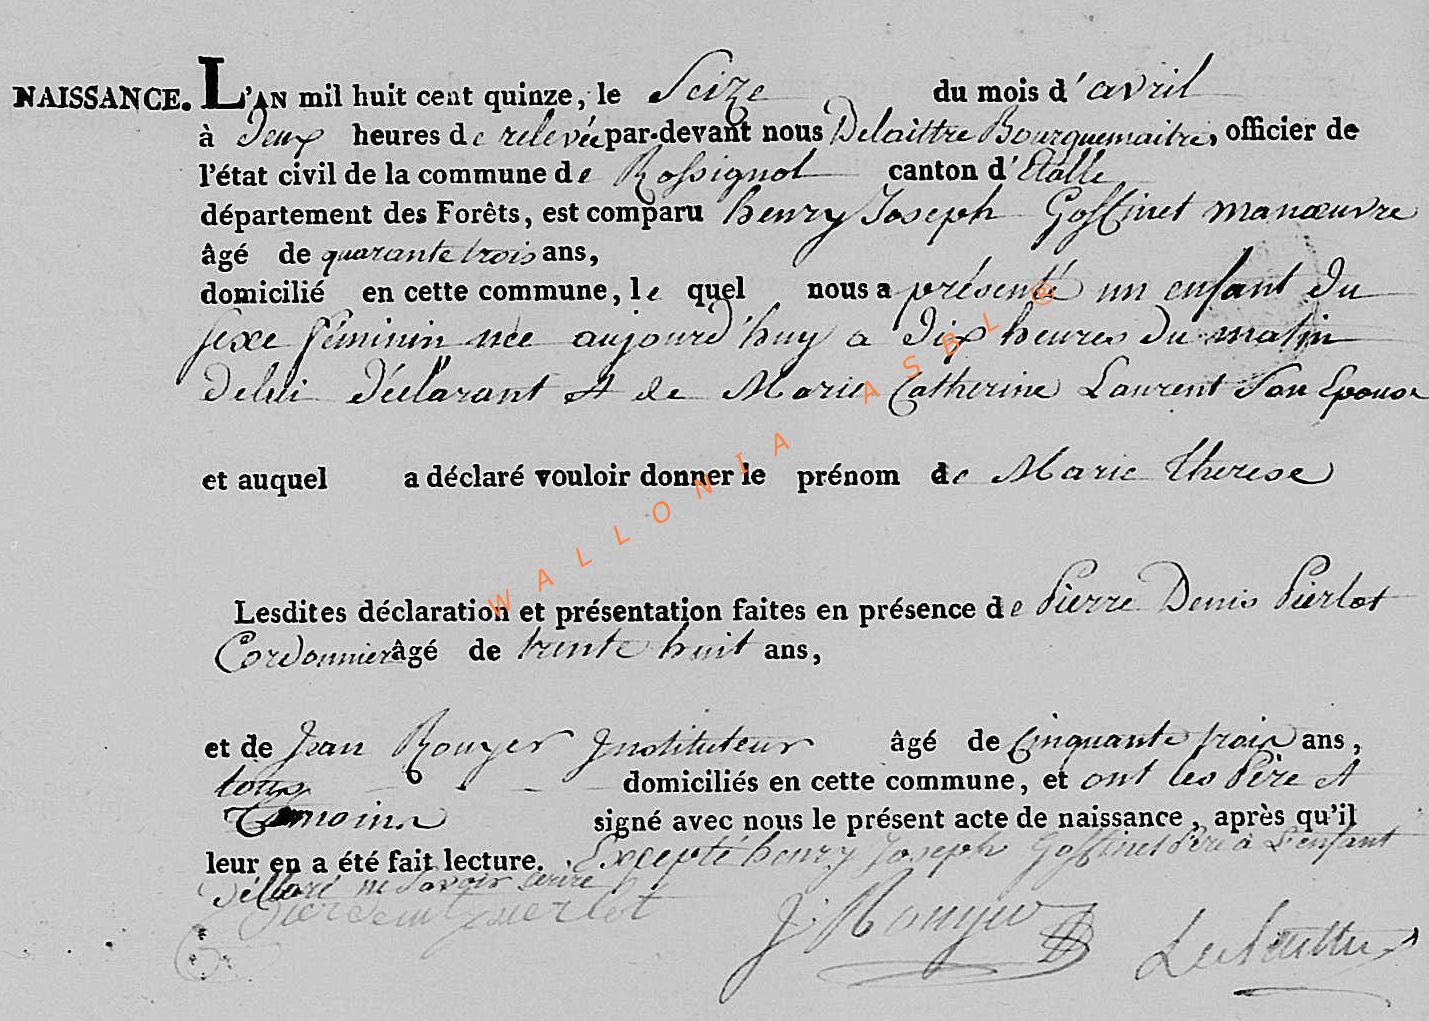 NAISSANCE. L'AN mil huit cent quinze, le Seize du mois d'avril
à Deux heures de relevée par-devant nous Delaittre Bourguemaitre, officier de
l'état civil de la commune de Rossignol canton d'Etalle
département des Forêts, est comparu henry Joseph Goffinet manœuvre
âgé de quarante trois ans,
domicilié en cette commune, le quel nous a présenté un enfant Du
sexe féminin née aujourd'huy a Dix heures du matin
Delui Déclarant et de Marie Catherine Laurent Son Epouse
et auquel a déclaré vouloir donner le prénom de Marie Therese
Lesdites déclaration et présentation faites en présence de Pierre Denis Pierlot
Cordonnier âgé de trente huit ans,
et de Jean Rouyer Instituteur âgé de Cinquante trois ans,
tous domiciliés en cette commune, et ont les Père et
Temoins signé avec nous le présent acte de naissance, après qu'il
leur en a été fait lecture. Excepté henry Joseph Goffinet Père à L'enfant
Déclaré ne Savoir écrire
Pierlot
J: Rouyer
WALLONIA ASBL ©